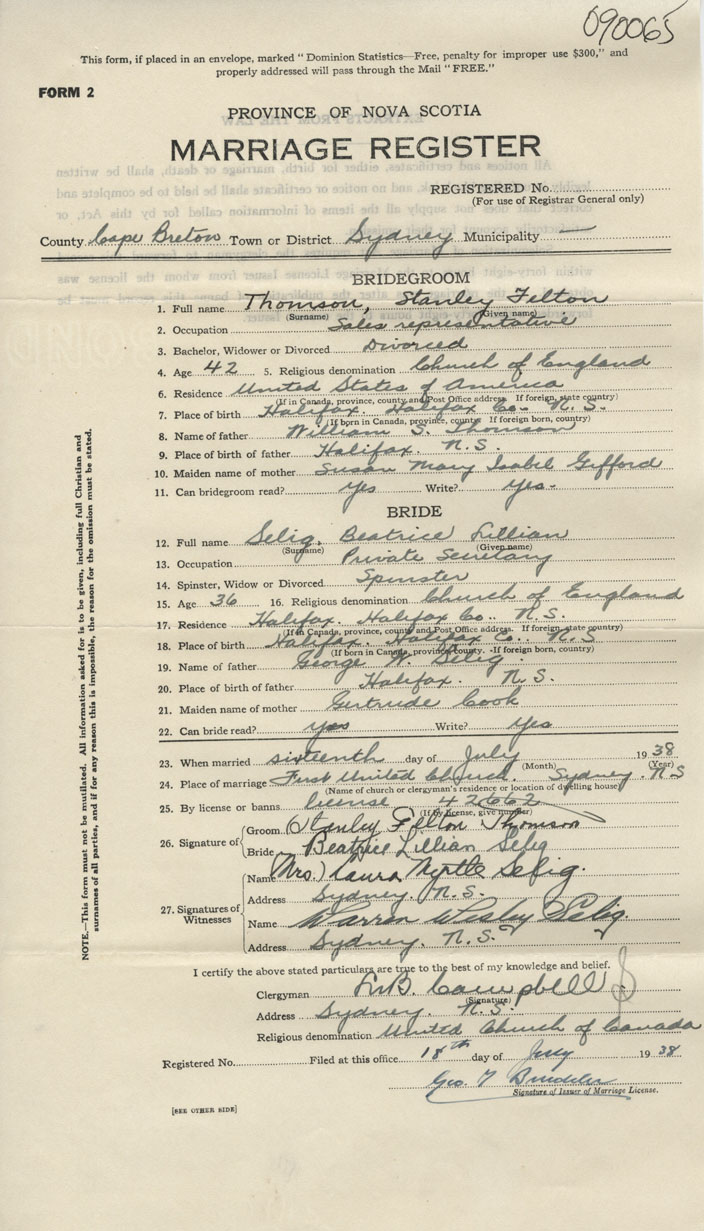 090065
This form, if placed in an envelope, marked "Dominion Statistics—Free, penalty for improper use $300," and
properly addressed will pass through the Mail "FREE."
FORM 2
PROVINCE OF NOVA SCOTIA
MARRIAGE REGISTER
REGISTERED No.
(For use of Registrar General only)
County Cape Breton Town or District Sydney Municipality —
BRIDEGROOM
1. Full name Thomson, Stanley Felton
(Surname) (Given name)
2. Occupation Sales representative
3. Bachelor, Widower or Divorced Divorced
4. Age 42 5. Religious denomination Church of England
6. Residence United States of America
(If in Canada, province, county and Post Office address. If foreign, state country)
7. Place of birth Halifax. Halifax Co. N. S.
(If born in Canada, province, county. If foreign born, country)
8. Name of father William S. Thomson
9. Place of birth of father Halifax. N.S.
10. Maiden name of mother Susan Mary Isabel Gifford
11. Can bridegroom read? yes Write? yes.
BRIDE
12. Full name Selig, Beatrice Lillian
(Surname) (Given name)
13. Occupation Private Secretary
14. Spinster, Widow or Divorced Spinster
15. Age 36 16. Religious denomination Church of England
17. Residence Halifax. Halifax Co. N.S.
(If in Canada, province, county and Post Office address. If foreign, state country)
18. Place of birth Halifax. Halifax Co. N.S
(If born in Canada, province, county. If foreign born, country)
19. Name of father George W. Selig.
20. Place of birth of father Halifax. N. S.
21. Maiden name of mother Gertrude Cook
22. Can bride read? yes Write? yes
23. When married sixteenth day of July 1938
(Month) (Year)
24. Place of marriage First United Church. Sydney. N S
(Name of church or clergyman's residence or location of dwelling house)
25. By license or banns license 42662
(If by license, give number)
26. Signature of Groom Stanley Felton Thomson
Bride Beatrice Lillian Selig
Name (Mrs.) Laura Myrtle Selig.
Address Sydney N.S.
27. Signatures of Witnesses
Name Warren Wesley Selig.
Address Sydney. N.S.
I certify the above stated particulars are true to the best of my knowledge and belief.
Clergyman Campbell
(Signature)
Address Sydney. N.S.
Religious denomination United Church of Canada
Registered No. Filed at this office 18th day of July 1938
Geo.
Signature of Issuer of Marriage License.
[SEE OTHER SIDE]
NOTE.—This form must not be mutilated. All information asked for is to be given, including full Christian and
surnames of all parties, and if for any reason this is impossible, the reason for the omission must be stated.